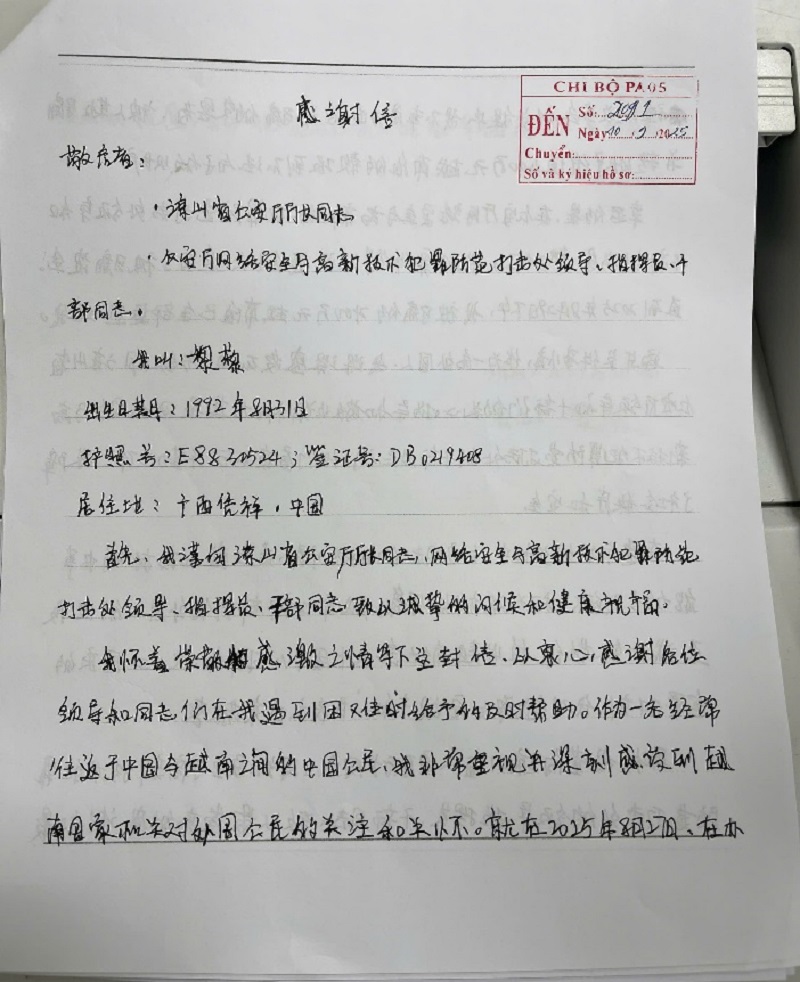 CHI BỘ PA05
ĐẾN
Số:
Ngày 10 . 9 . 2025
Chuyển:
Số và ký hiệu hồ sơ:
感谢信
敬启者：
· 谅山省公安厅厅长同志
· 公安厅网络安全与高新技术犯罪防范打击处领导、指挥员、干
部同志。
我叫：
出生日期：1992年8月31日
护照号：E8830524；签证号：DB0219408
居住地：广西凭祥，中国
首先，我谨向谅山省公安厅厅长同志，网络安全与高新技术犯罪防范
打击处领导、指挥员、干部同志致以诚挚的问候和健康祝福。
我怀着 感激之情写下这封信，从衷心感谢各位
领导和同志们在我遇到困难时给予的及时帮助。作为一名经常
往返于中国与越南之间的中国公民，我非常重视并深刻感受到越
南国家机关对外国公民的关注和关怀。就在2025年8月27日，在办